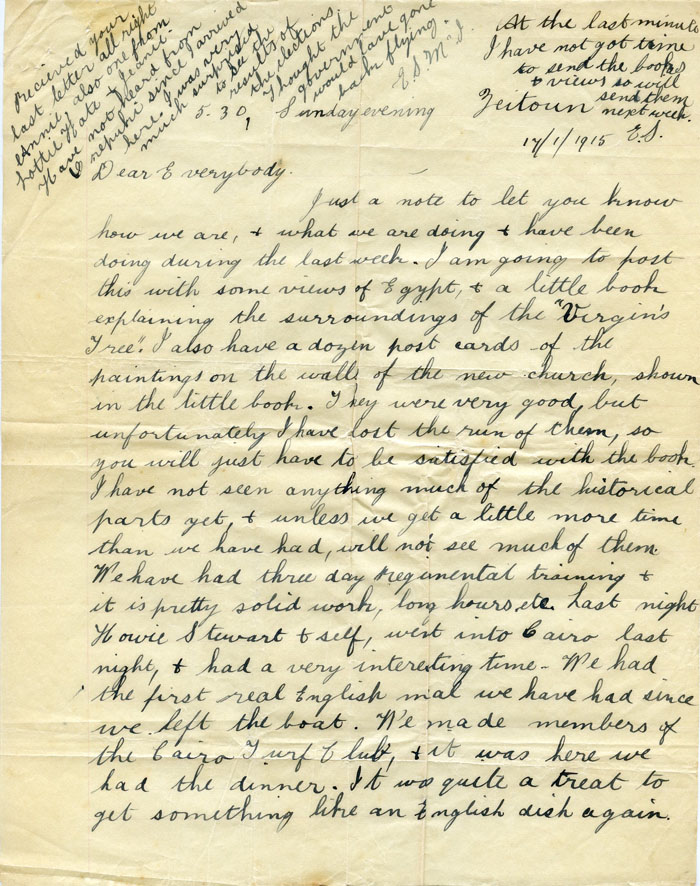 Recieved your
last letter all right
Annie, also one from
Lottie Hate & Jeanie.
Have not heard from
nephui since I arrived
here. I was very
much surprised
to see the
results of
the elections
Thought the
government
would have gone
back flying
E. S. M. I.
At the last minute
I have not got time
to send the books
& views so will
send them
next week.
E.S.
Zeitoun
17/1/1915
5.30, Sunday evening
Dear Everybody.
Just a note to let you know
how we are, & what we are doing & have been
doing during the last week. I am going to post
this with some views of Egypt, & a little book
explaining the surroundings of the "Virgin's
Tree". I also have a dozen post cards of the
paintings on the walls of the new church, shown
in the little book. They were very good, but
unfortunately I have lost the run of them, so
you will just have to be satisfied with the book
I have not seen anything much of the historical
parts yet, & unless we get a little more time
than we have had, will not see much of them
We have had three day Regimental training &
it is pretty solid work, long hours etc. Last night
Howie Stewart & self, went into Cairo last
night, & had a very interesting time - We had
the first real English mal we have had since
we left the boat. We made members of
the Cairo Turf Club, & it was here we
had the dinner. It was quite a treat to
get something like an English dish again.